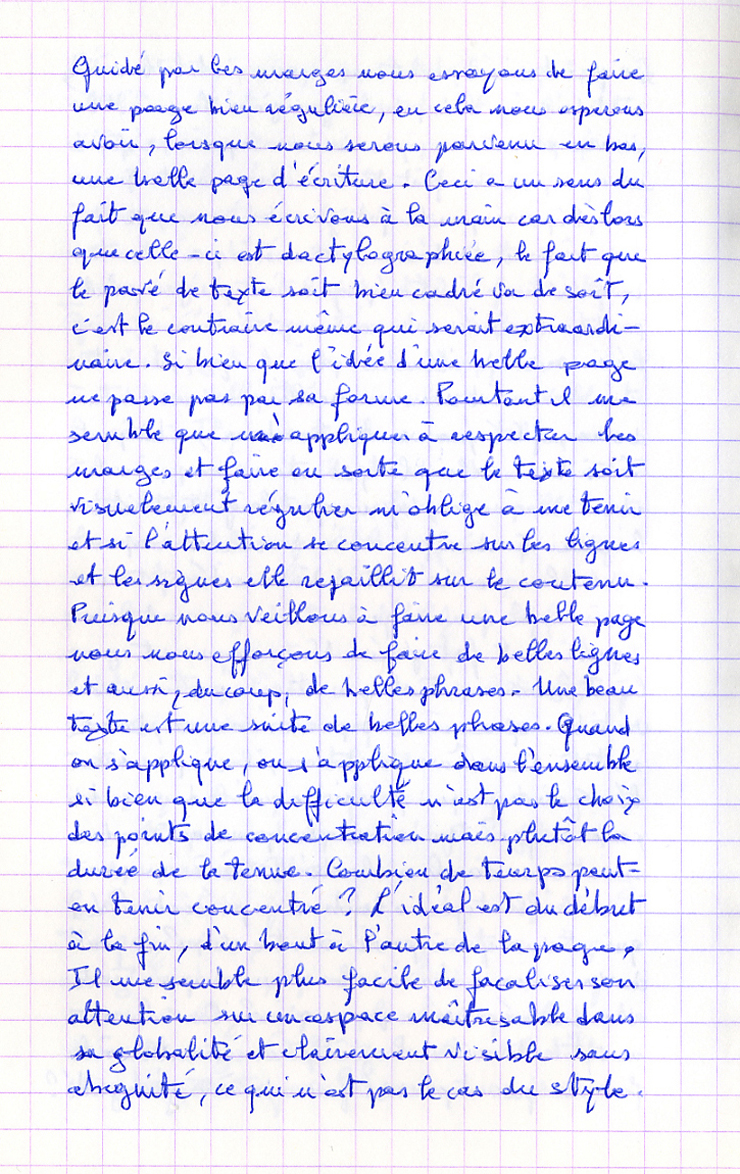 Guidé par les marges nous essayons de faire
une page bien régulière, en cela nous esperons
avoir, lorsque nous serons parvenu en bas,
une belle page d'écriture. Ceci a un sens du
fait que nous écrivons à la main car dès lors
que celle-ci est dactylographiée, le fait que
le pavé de texte soit bien cadré va de soit,
c'est le contraire même qui serait extraordi-
naire. Si bien que l'idée d'une belle page
ne passe pas par sa forme. Pourtant il me
semble que appliquer à respecter les
marges et faire en sorte que le texte soit
visuellement régulier m'oblige à me tenir
et si l'attention se concentre sur les lignes
et les signes elle rejaillit sur le contenu.
Puisque nous veillons à faire une belle page
nous nous efforçons de faire de belles lignes
et aussi, du coup, de belles phrases. Une beau
texte est une suite de belles phrases. Quand
on s'applique, on s'applique dans l'ensemble
si bien que la difficulté n'est pas le choix
des points de concentration mais plutôt la
durée de la tenue. Combien de temps peut-
on tenir concentré ? L'idéal est du début
à la fin, d'un bout à l'autre de la page.
Il me semble plus facile de focaliser son
attention sur un espace maîtrisable dans
sa globalité et clairement visible sans
ambiguité, ce qui n'est pas le cas du style.